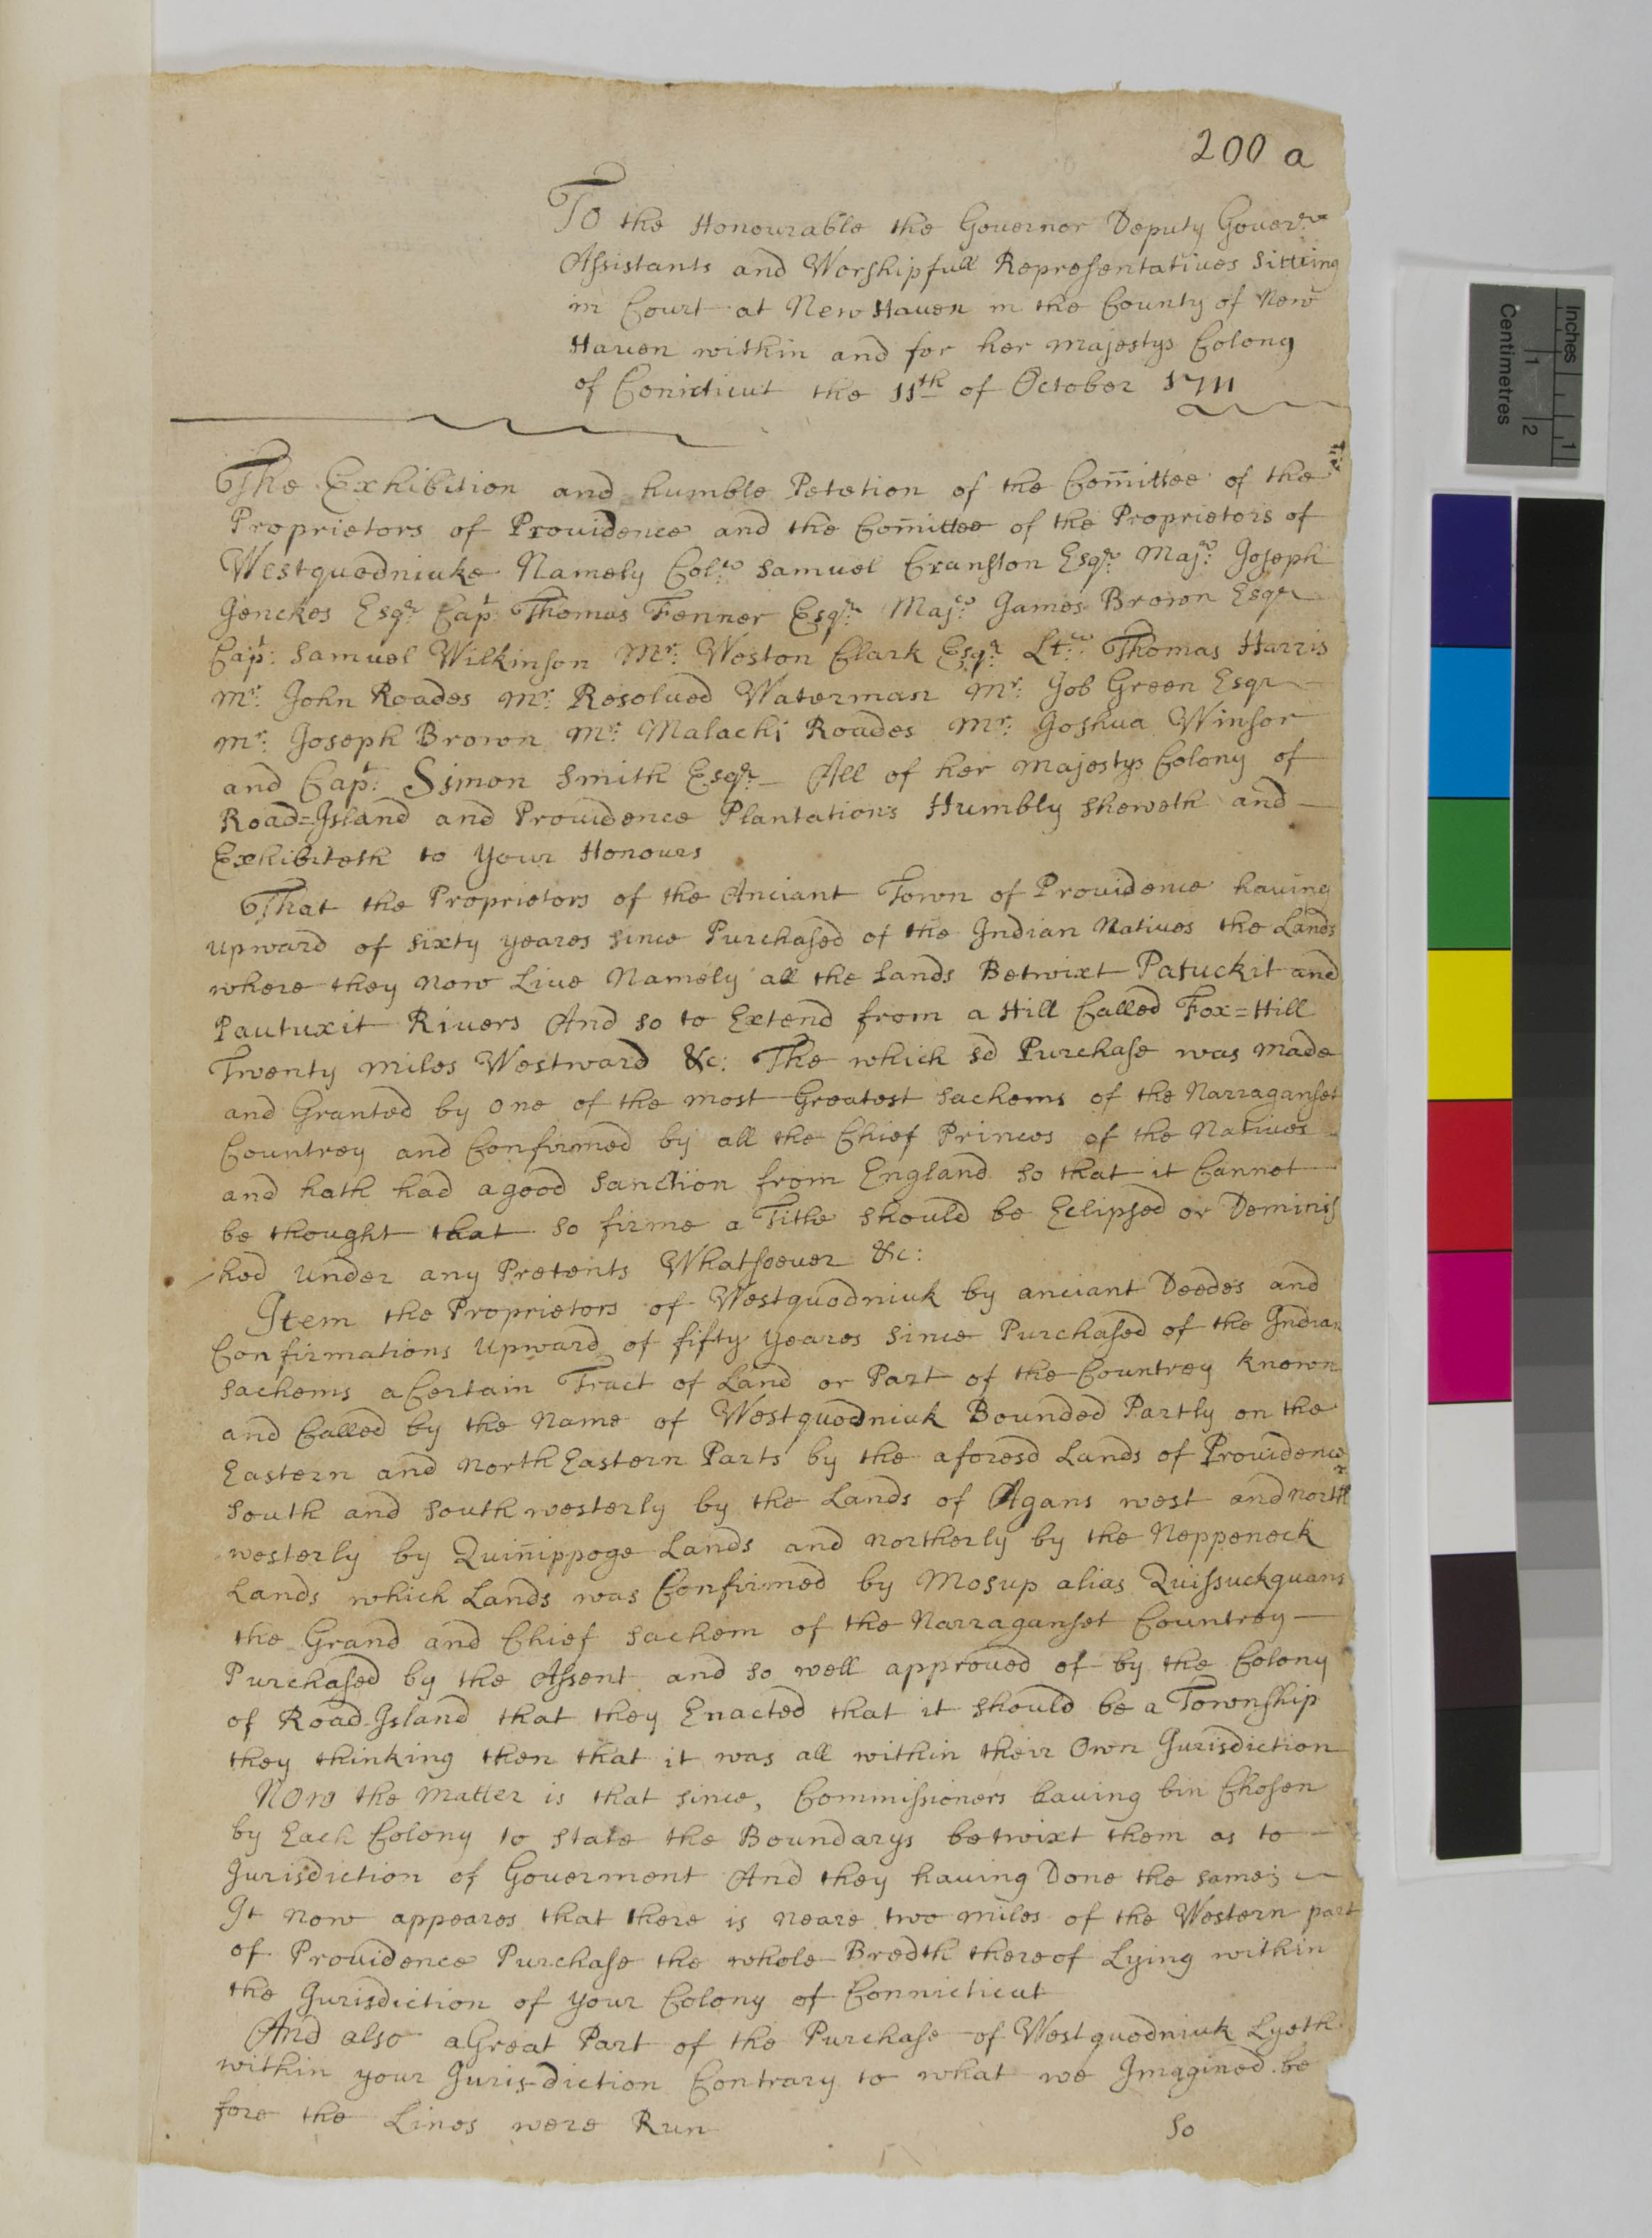 200 a
To the Honourable the Governor Deputy Goverr
Assistants and Worshipfull Representatives Sitting
in Court at New Haven in the County of New
Haven within and for her majestys Colony
of Conicticut the 11th of October 1711
The Exhibition and humble Petetion of the Com̄ittee of the
Proprietors of Providence and the Com̄ittee of the Proprietors of
Westquodniuke Namely Collo Samuel Cranston Esqr Majr Joseph
Jenckes Esqr Capt Thomas Fenner Esqr Majr James Brown Esqr
Capt: Samuel Wilkinson Mr: Weston Clark Esqr Lt: Thomas Harris
Mr: John Roades Mr: Resolved Waterman Mr: Job Green Esqr
Mr: Joseph Brown Mr: Malachi Roades Mr: Joshua Winsor
and Capt: Simon Smith Esqr All of her Majestys Colony of
Road=Island and Providence Plantations Humbly sheweth and
Exhibiteth to your Honours
That the Proprietors of the Anciant Town of Providence having
upward of sixty yeares since Purchased of the Indian Natives the Lands
where they now Live Namely all the Lands Betwixt Patuckit and
Pautuxit Rivers And so to Extend from a Hill Called Fox=Hill
Twenty miles Westward &c: The which sd Purchase was made
and Granted by one of the most Greatest sachems of the Narraganset
Countrey and Confirmed by all the Chief Princes of the Natives
and hath had a good Sanction from England so that it Cannot
be thought that so firme a Title should be Eclipsed or Deminis
hed under any Pretents Whatsoever &c:
Item the Proprietors of Westquodniuk by anciant Deedes and
Confirmations upward of fifty yeares since Purchased of the Indian
sachems a Certain Tract of Land or Part of the Countrey known
and Called by the Name of Westquodniuk Bounded Partly on the
Eastern and North Eastern Parts by the aforesd Lands of Providence
south and south westerly by the Lands of Agans west and north
westerly by Quin̄ippoge Lands and northerly by the Neppeneck
Lands which Lands was Confirmed by Mosup alias Quissuckquans
the Grand and Chief sachem of the Narraganset Countrey
Purchased by the Assent and so well approved of by the Colony
of Road-Island that they Enacted that it should be a Township
they thinking then that it was all within their Own Jurisdiction
Now the matter is that since, Commissioners having bin Chosen
by Each Colony to state the Boundarys betwixt them as to
Jurisdiction of Goverment And they having Done the same;
It now appeares that there is neare two miles of the Western part
of Providence Purchase the whole Bredth thereof Lying within
the Jurisdiction of your Colony of Connicticut
And also a Great Part of the Purchase of Westquodniuk Lyeth
within your Jurisdiction Contrary to what we Imagined be
fore the Lines were Run
So
Inches
1
1
2
Centimetres